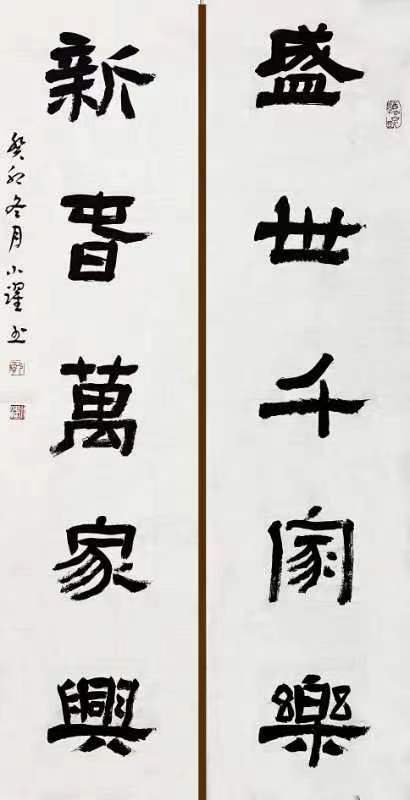 盛世千家樂
新旾萬家興
癸卯冬月小